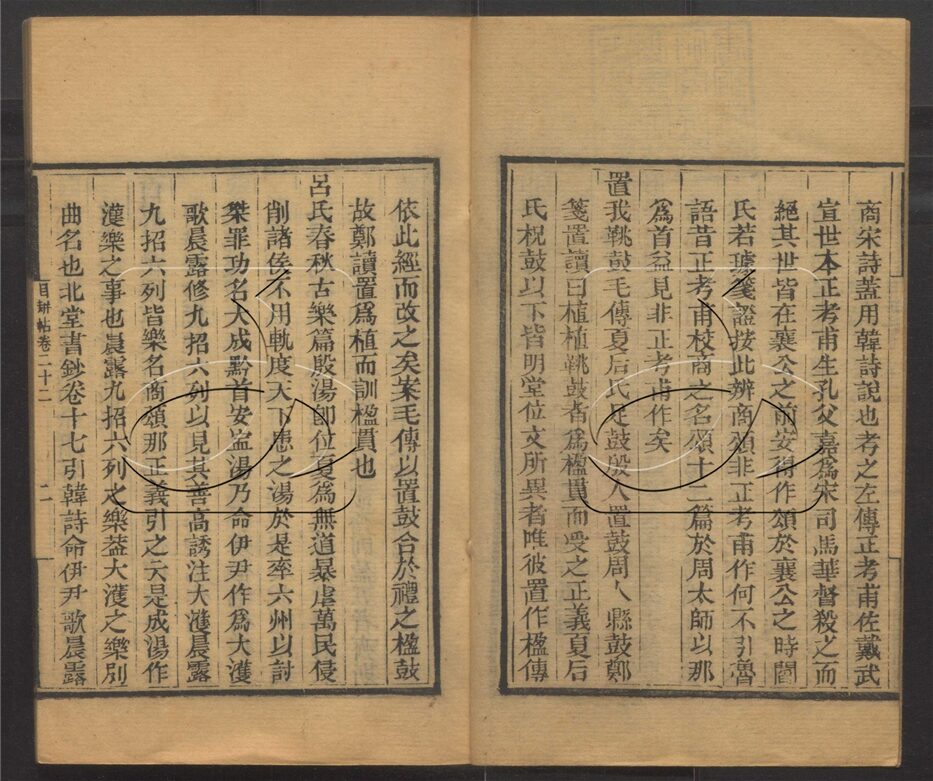 商宋詩蓋用韓詩說也考之左傳正考甫佐戴武
宣世本正考甫生孔父嘉爲宋司馬華督殺之而
絕其世皆在襄公之前安得作頌於襄公之時閻
氏若璩箋證按此辨商頌非正考甫作何不引魯
語昔正考甫校商之名頌十二篇於周太師以那
爲首益見非正考甫作矣
置我鞉鼓毛傳夏后氏足鼓殷人置鼓周人縣鼓鄭
箋置讀曰植植鞉鼓者爲楹貫而受之正義夏后
氏柷鼓以下皆明堂位文所異者唯彼置作楹傳
依此經而改之矣案毛傳以置鼓合於禮之楹鼓
故鄭讀置爲植而訓楹貫也
呂氏春秋古樂篇殷湯卽位夏爲無道暴虐萬民侵
削諸侯不用軌度天下患之湯於是率六州以討
桀罪功名大成黔首安寍湯乃命伊尹作爲大濩
歌晨露修九招六列以見其善高誘注大濩晨露
九招六列皆樂名商頌那正義引之云是成湯作
濩樂之事也晨露九招六列之樂葢大濩之樂別
曲名也北堂書鈔卷十七引韓詩命伊尹歌晨露
目耕帖卷二十二
二